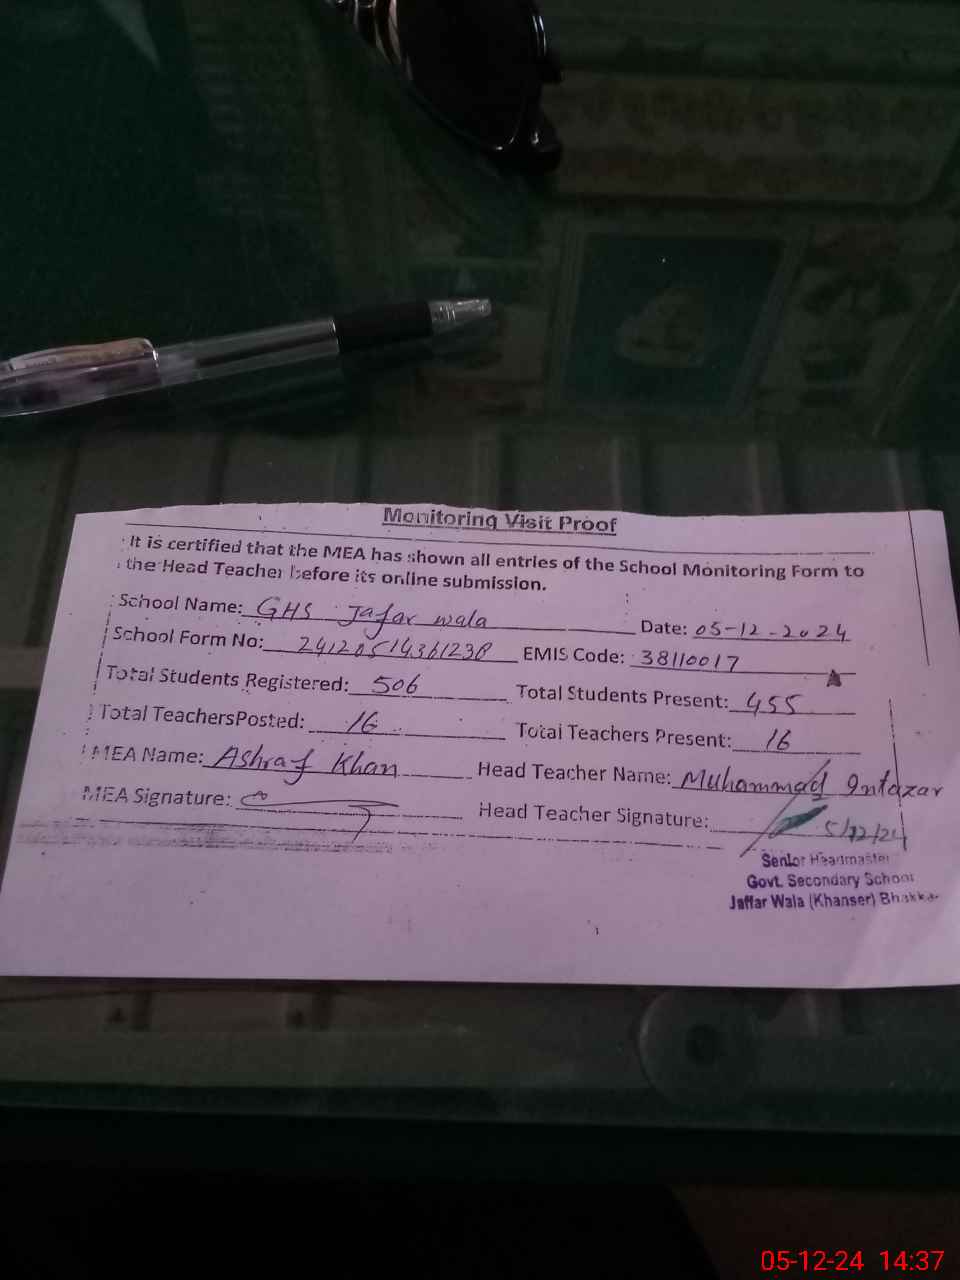 Monitoring Visit Proof
It is certified that the MEA has shown all entries of the School Monitoring Form to
the Head Teacher before its online submission.
School Name: GHS Jafar wala Date: 05-12-2024
School Form No: 24120514361238 EMIS Code: 38110017
Total Students Registered: 506 Total Students Present: 455
Total TeachersPosted: 16 Total Teachers Present: 16
MEA Name: Ashraf Khan Head Teacher Name: Muhammad Intazar
MEA Signature: Head Teacher Signature: 5/12/24
Senior Headmaster
Govt. Secondary School
Jaffar Wala (Khanser) Bhakkar
05-12-24 14:37